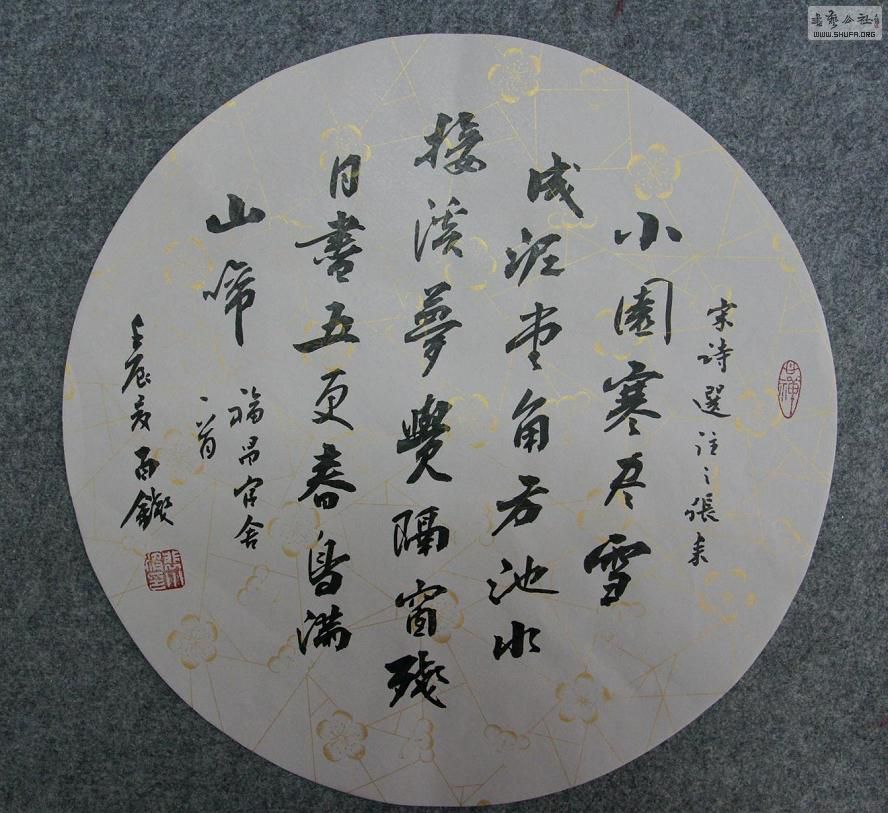 書藝公社
WWW.SHUFA.ORG
宋詩選註之張耒
小園寒尽雪
成泥堂角方池水
接溪夢覺隔窗殘
月盡五更春鳥滿
山啼
福昌官舍
一首
壬辰夏百